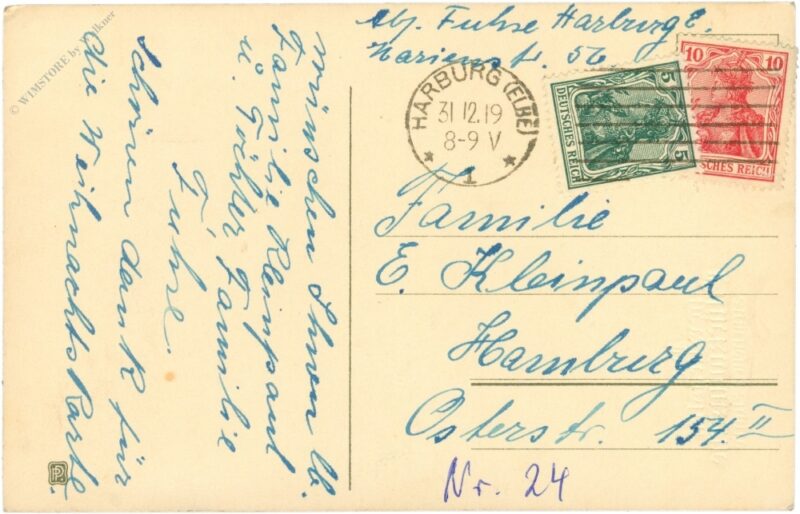 Abj. Fuhse Harburg E.
Marienstr. 56
HARBURG (ELBE)
31 12.19
8-9 V
* 1 *
5
DEUTSCHES REICH
5
10 10
SCHES REICH
Familie
E. Kleinpaul
Hamburg
Osterstr. 154. II
Nr. 24
wünschen Ihnen lb.
Familie Kleinpaul
u. Tochter Familie
Fuhse.
Schönen dank für
die Weihnachtskarte.
© WIMSTORE by Walkner
PP